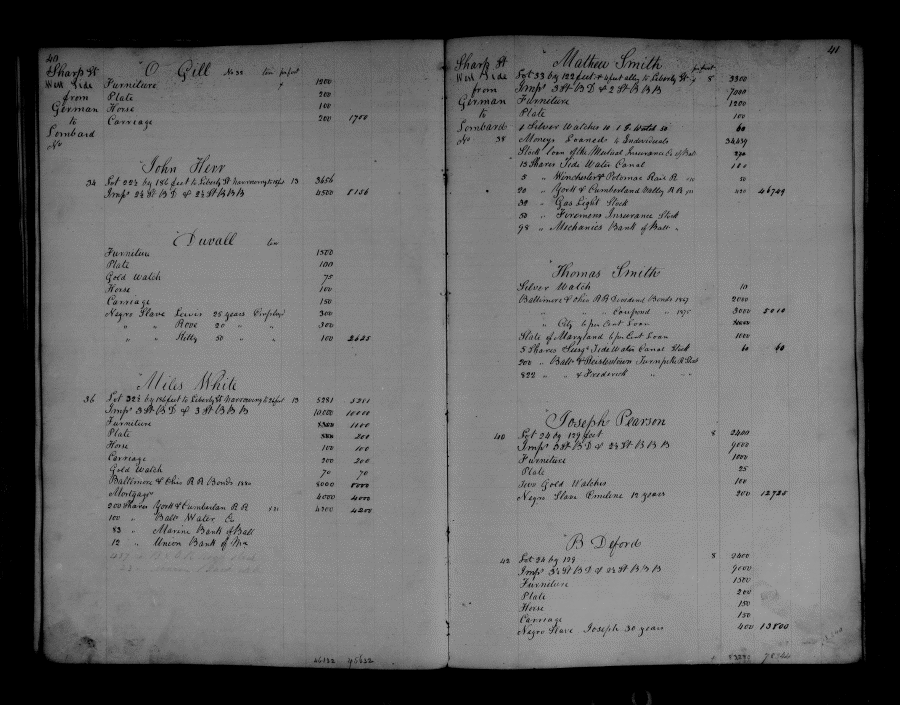 40
Sharp St
West Side
from
German
to
Lombard
No
O Gill No 32 ten pr foot
Furniture 1200
Plate 200
Horse 100
Carriage 200 1700
John Herr
34 Lot 22½ by 186 feet to Liberty St 13 3656
Imps 2½ St B D & 2½ St B B B 4500 8156
Duvall ten
Furniture 1500
Plate 100
Gold Watch 75
Horse 100
Carriage 150
Negro Slave Lewis 25 years 300
" " Rove 20 " " 300
" " Hilly 50 " " 100 2625
Miles White
36 Lot 32½ by 186 feet to Liberty St 13 5281 5281
Imps 3 St B D & 3 St B B B 10,000 10000
Furniture 1100
Plate 200
Horse 100 100
Carriage 200 200
Gold Watch 70 70
Baltimore & Ohio R R Bonds 8000 8000
Mortgage 4000 4000
200 Shares York & Cumberlan R R 4200 4200
100 " Balt Water Co
83 " Marine Bank of Balt
12 " Union Bank of Ma
41
Sharp St
West Side
from
German
to
Lombard
No 38
Mathew Smith pr foot
Lot 33 by 122 feet & 4 foot alley to Liberty St 8 3300
Imps 3 St B D & 2 St B B B 7000
Furniture 1200
Plate 100
1 Silver Watches 10 1 G Watch 50 60
Moneys Loaned to Individuals 34439
Stock loan of the Mutual Insurance Co of Balt 270
15 Shares Tide Water Canal
5 " Winchester & Potomac Rail R 50
20 " York & Cumberland Valley R R 420 46749
32 " Gas Light Stock
50 " Foremens Insurance Stock
98 " Mechanics Bank of Balt "
Thomas Smith
Silver Watch 10
Baltimore & Ohio R R Dividend Bonds 1867 2000
" " " Coupond " 1875 3000 5010
" City 6 per Cent Loan
State of Maryland 6 per Cent Loan 1000
5 Shares Susqa Tide Water Canal Stock 60 60
200 " Balt & Reisterstown Turnpike R Stock
822 " " & Frederick " "
Joseph Pearson
40 Lot 24 by 129 feet 8 2400
Imps 3 St B D & 2½ St B B B 9000
Furniture 1000
Plate 25
Two Gold Watches 100
Negro Slave Emiline 12 years 200 12725
B Deford
42 Lot 24 by 129 8 2400
Imps 3½ St B D & 2½ St B B B 9000
Furniture 1500
Plate 200
Horse 150
Carriage 150
Negro Slave Joseph 30 years 400 13800